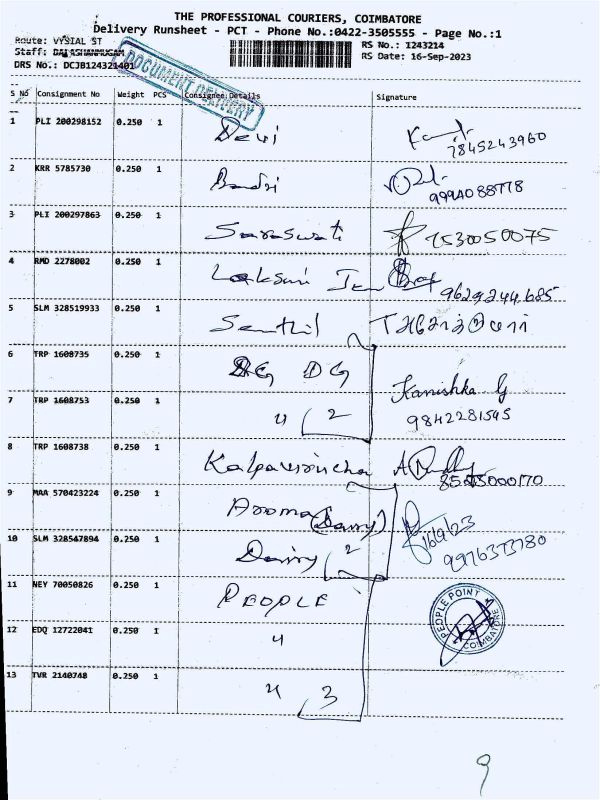 THE PROFESSIONAL COURIERS, COIMBATORE
Delivery Runsheet - PCT - Phone No.:0422-3505555 - Page No.:1
Route: VYSIAL ST RS No.: 1243214
Staff: RS Date: 16-Sep-2023
DRS No.: DCJB124321401
DOCUMENT DELIVERY
S No Consignment No Weight PCS Consignee Details Signature
1 PLI 200298152 0.250 1 Devi
7845243960
2 KRR 5785730 0.250 1 Badri
3 PLI 200297863 0.250 1 Saraswati 7530050075
4 RMD 2278002 0.250 1
9629244685
5 SLM 328519933 0.250 1 Senthil
6 TRP 1608735 0.250 1 DG
Kanishka G
7 TRP 1608753 0.250 1 2
9842281595
8 TRP 1608738 0.250 1
9 MAA 570423224 0.250 1 Aroma (Dairy)
16/9/23
10 SLM 328547894 0.250 1 Dairy 2
11 NEY 70050826 0.250 1 PEOPLE
PEOPLE POINT COIMBATORE
12 EDQ 12722041 0.250 1 "
13 TVR 2140748 0.250 1 " 3
9